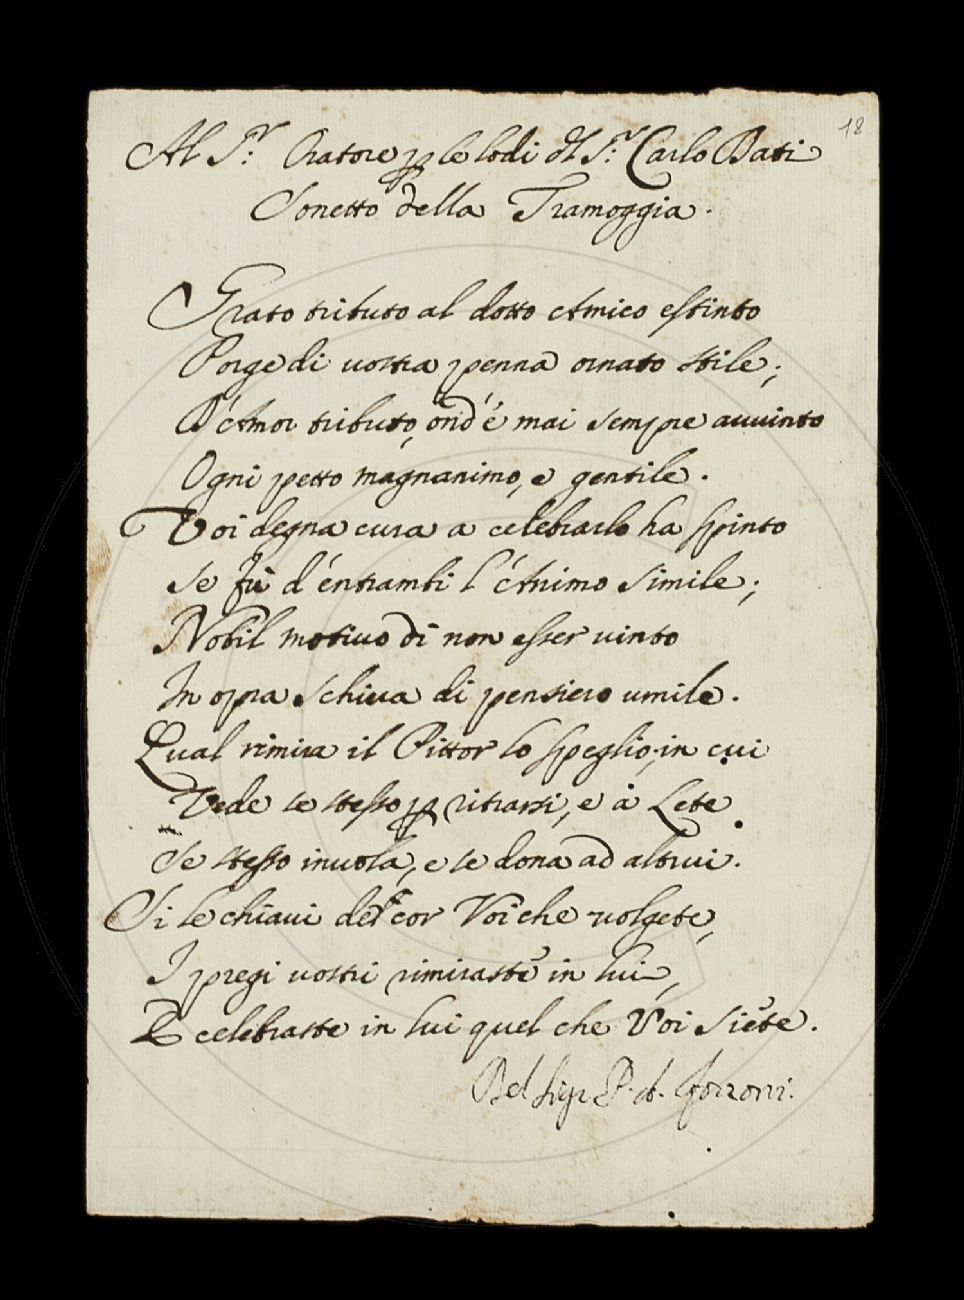 18
Al S.r Oratore p le lodi del S.r Carlo Dati
Sonetto della Tramoggia.
Grato tributo al dotto Amico estinto
Porge di vostra penna ornato stile;
D'Amor tributo, ond'é mai sempre avvinto
Ogni petto magnanimo, e gentile.
Voi degna cura a celebrarlo ha spinto
Se fù d'entrambi l'Animo simile;
Nobil motivo di non esser vinto
In opra schiva di pensiero umile.
Qual rimira il Pittor lo speglio, in cui
Vede se stesso p ritrarsi, e à Lete
Se stesso invola, e se dona ad altrui.
Si le chiavi del cor Voi che volgete,
I pregi vostri rimiraste in lui,
E celebraste in lui quel che Voi siete.
Del Sigr P. A.